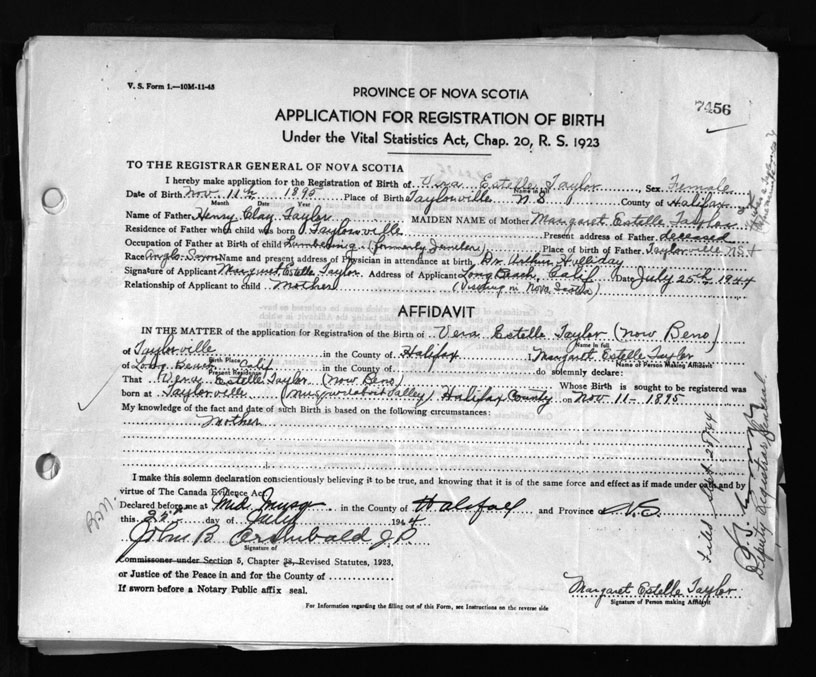 V. S. Form 1.—10M-11-43
PROVINCE OF NOVA SCOTIA
7456
APPLICATION FOR REGISTRATION OF BIRTH
Under the Vital Statistics Act, Chap. 20, R. S. 1923
TO THE REGISTRAR GENERAL OF NOVA SCOTIA
I hereby make application for the Registration of Birth of Vera Estelle Taylor, Sex Female
Name in full
Date of Birth Nov. 11th 1895 Place of Birth Taylorville N S County of Halifax
Month Day Year
Name of Father Henry Clay Taylor MAIDEN NAME of Mother Margaret Estelle Taylor
Residence of Father when child was born Taylorsville Present address of Father deceased
Occupation of Father at Birth of child Lumbering (formerly Jeweler) Place of birth of Father Taylorville NS
Race Name and present address of Physician in attendance at birth Dr. Arthur Holliday
Signature of Applicant Margaret Estelle Taylor Address of Applicant Long Beach, Calif Date July 25th, 1944
Relationship of Applicant to child mother (Visiting in Nova Scotia)
AFFIDAVIT
IN THE MATTER of the application for Registration of the Birth of Vera Estelle Taylor (now Beno)
Name in full
of Taylorville in the County of Halifax I Margaret Estelle Taylor
Birth Place Name of Person Making Affidavit
of Long Beach Calif in the County of do solemnly declare:
Present Residence
That Estelle Taylor (now Beno) Whose Birth is sought to be registered was
born at Taylorville Halifax County on Nov 11- 1895
My knowledge of the fact and date of such Birth is based on the following circumstances:
mother
I make this solemn declaration conscientiously believing it to be true, and knowing that it is of the same force and effect as if made under oath and by
virtue of The Canada Evidence Act.
Declared before me at Mid. Musq in the County of Halifax and Province of N.S.
this 25th day of July 1944
John B Archibald J.P.
Signature of
Commissioner under Section 5, Chapter 38, Revised Statutes, 1923,
or Justice of the Peace in and for the County of
If sworn before a Notary Public affix seal.
Margaret Estelle Taylor
Signature of Person making Affidavit
For Information regarding the filling out of this Form, see Instructions on the reverse side
Filed Sept 28/44
Deputy Registrar General